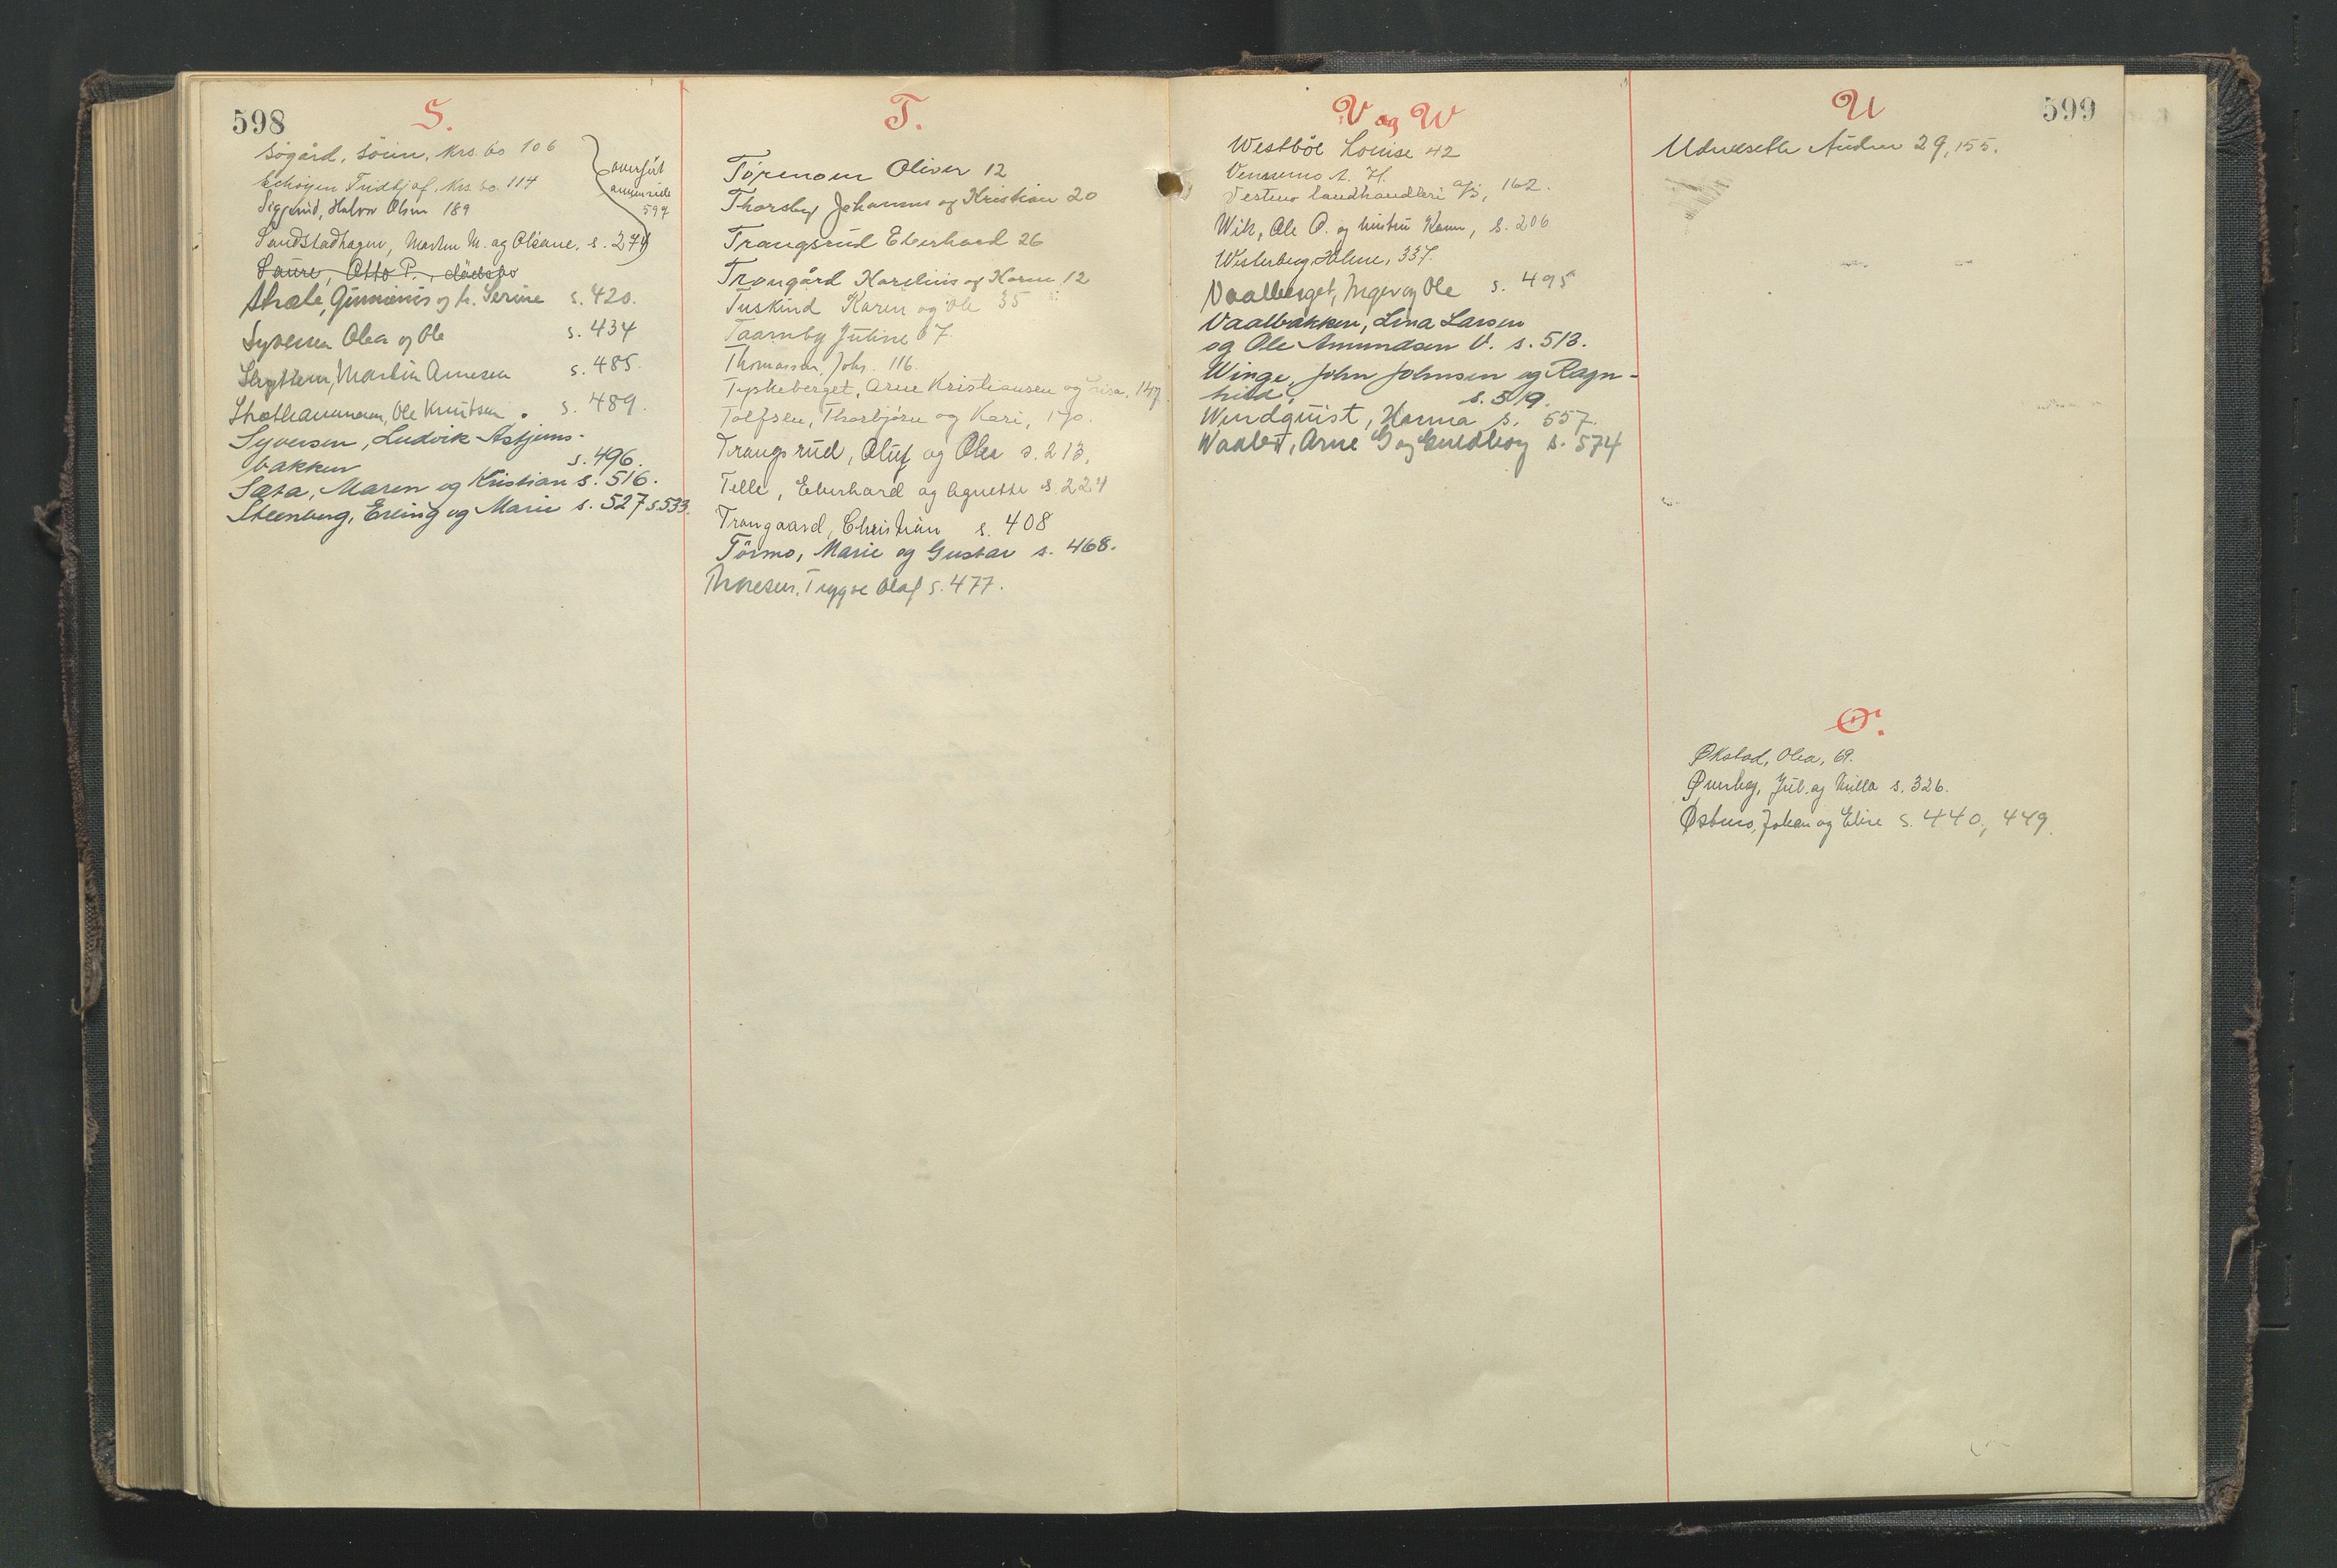 598
S.
Søgård, Søren, Krs. bo 106
Echogen Fridtjof, Krs. bo. 114
Siggerud, Halvor Olsen 189
Sandstadhagen, Morten M. og Oleane, s. 279
overført
annen side
597
Saure, Otto P., dødsbo
Stræte, Gunnerius og h. Serine s. 420.
Syversen Olea og Ole s. 434
Martin Arnesen s. 485.
Ole Knutsen. s. 489.
Syversen, Ludvik Astjerns-
bakken s. 496.
Sæta, Maren og Kristian s. 516.
Steenberg, Erling og Marie s. 527 s. 533.
T.
Tørenoen Oliver 12
Thorsby Johannes og Kristian 20
Trangsrud Eberhard 26
Trongård Karelius og Karen 12
Tuskind Karen og Ole 35
Taarnby Juline 67.
Thomassen, Johs. 116.
Tyskeberget, Arne Kristiansen og Lisa, 147
Tolfsen, Thorbjørn og Kari, 170.
Trangsrud, Oluf og Olea s. 213.
Telle, Eberhard og Agnethe s. 224
Trongaard, Christian s. 408
Törmo, Marie og Gustav s. 468.
Thoresen, Trygve Olaf s. 477.
V og W
Westböe Louise 42
Vennemo A. H.
Vestmo landhandleri A/S, 162.
Wik, Ole O. og hustru Karen, s. 206
Westerberg, Helene, 337.
Vaalberget, Inger og Ole s. 495
Vaalbakken, Lina Larsen
og Ole Amundsen V. s. 513.
Winge, John Johnsen og Ragn-
hild, s. 519.
Windquist, Hanna s. 557.
Waaler, Arne G og Guldborg s. 574
U
599
Udnesseth Audun 29, 155.
Ø.
Økstad, Olea, 69.
Øverbey, Jul. og Milla s. 326.
Østmo, Johan og Elise s. 440, 449.